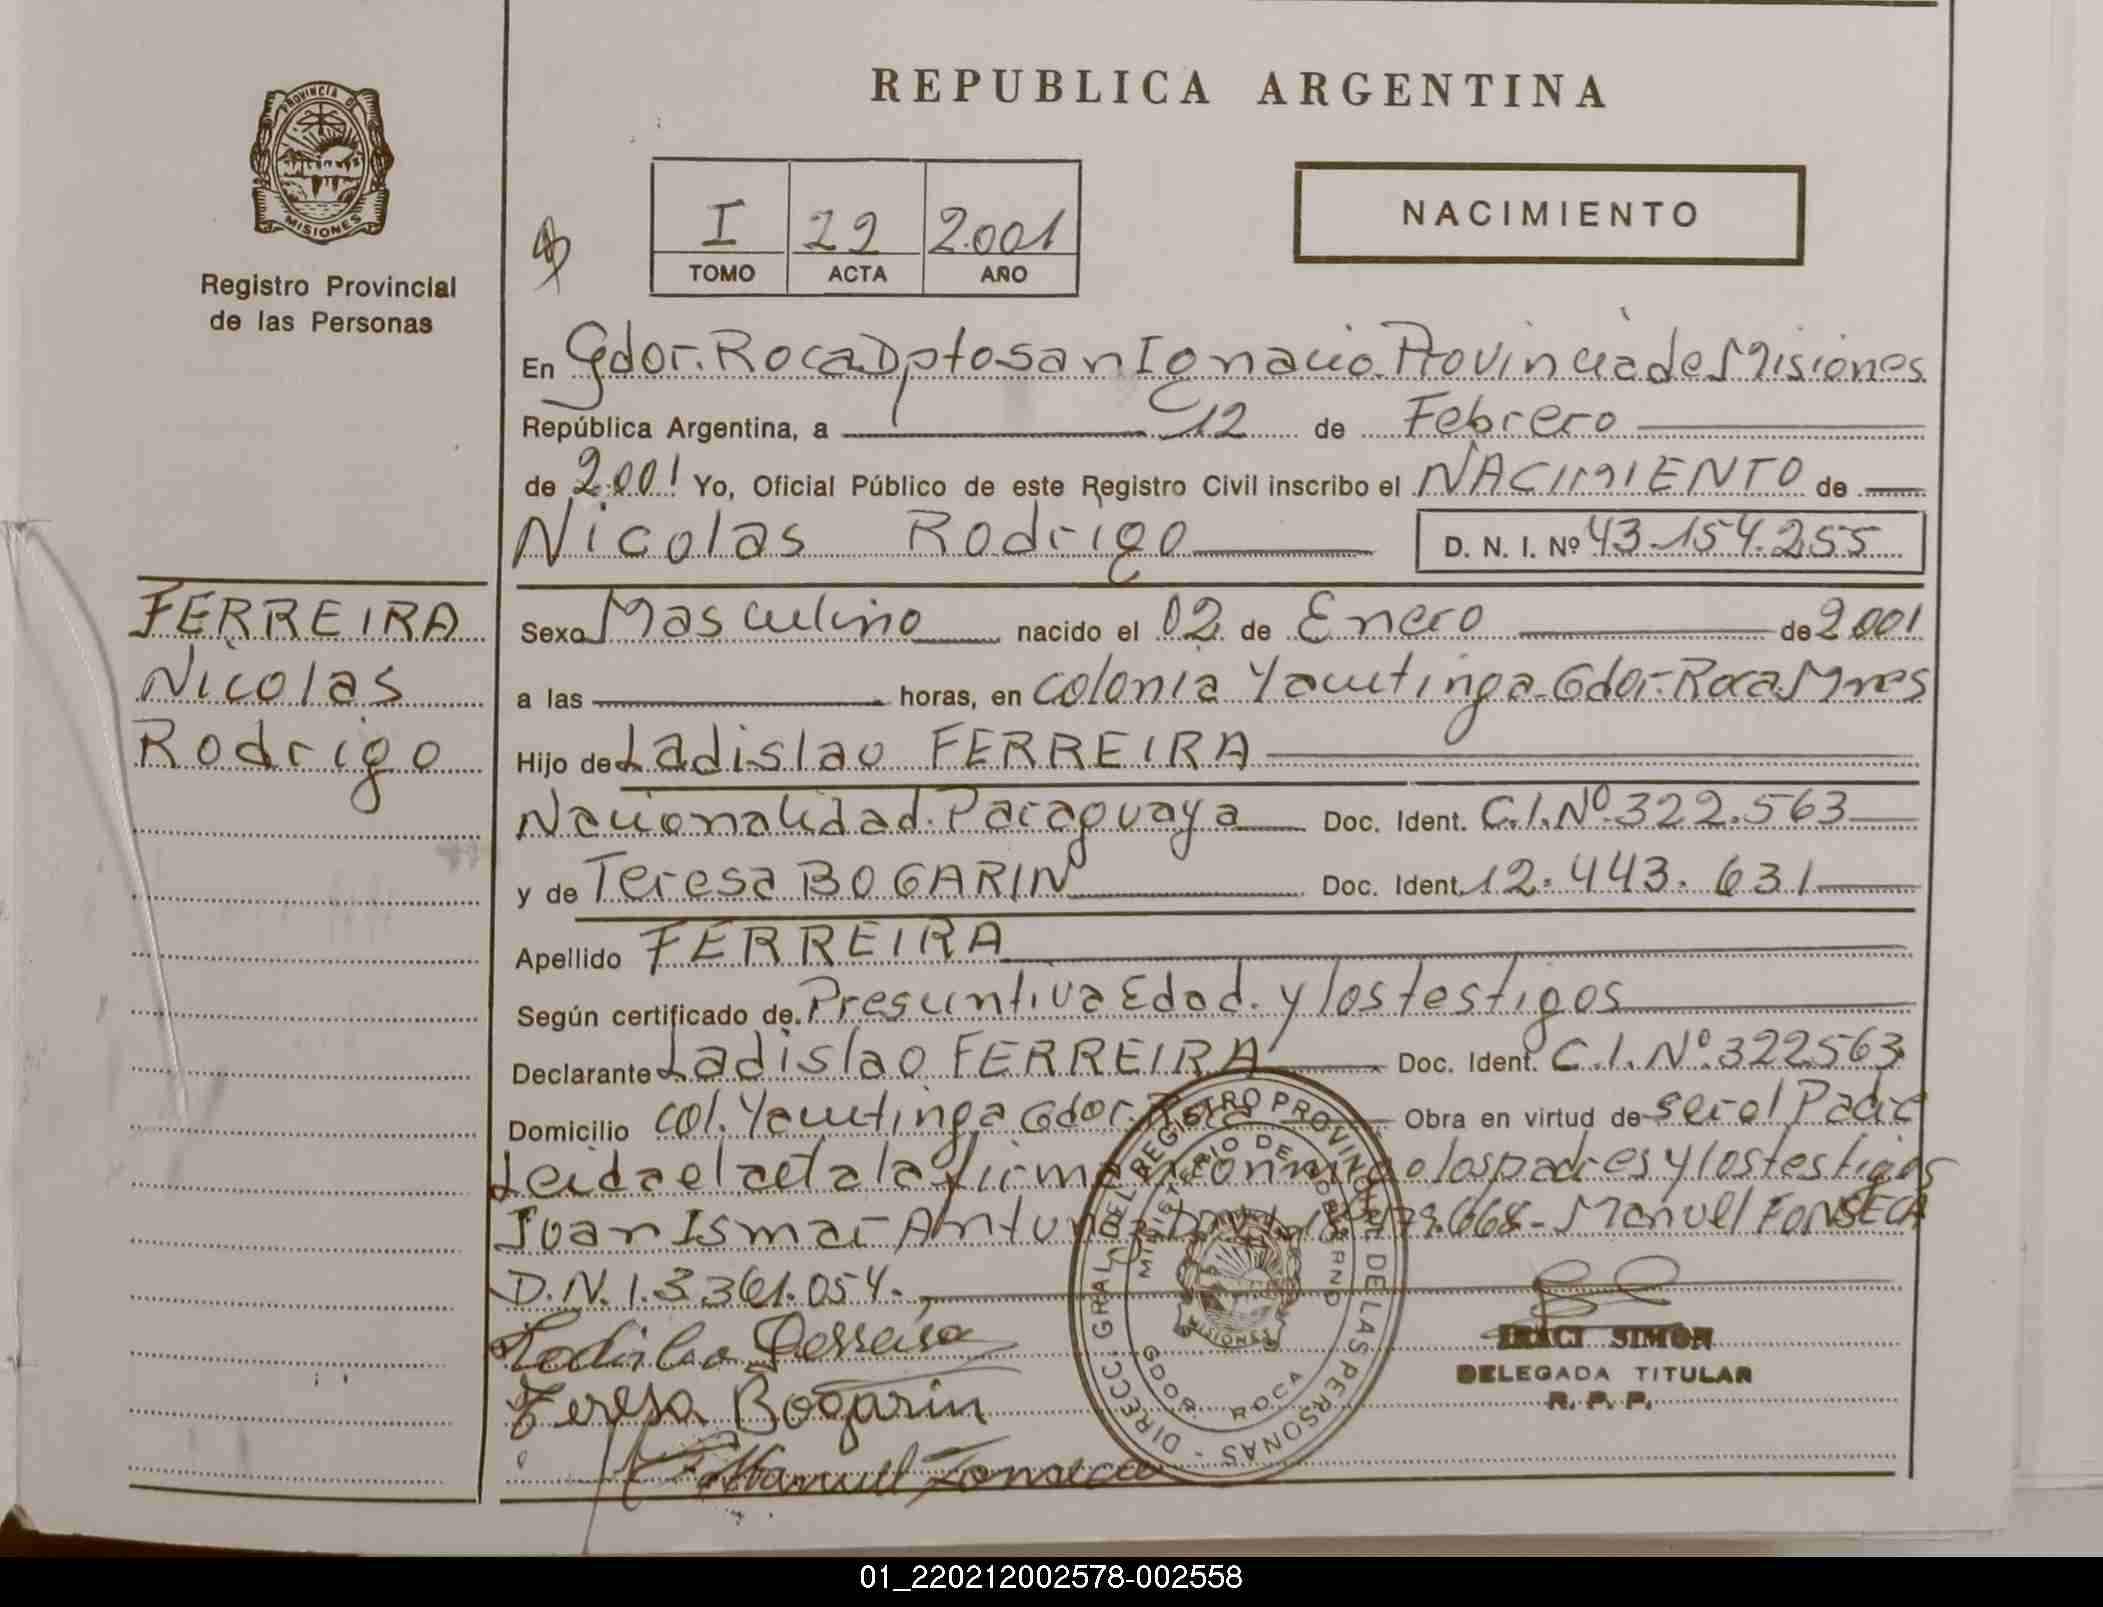 REPUBLICA ARGENTINA
PROVINCIA DE
MISIONES
Registro Provincial
de las Personas
I 22 2.001
TOMO ACTA AÑO
NACIMIENTO
En Gdor. Roca Dpto San Ignacio Provincia de Misiones
República Argentina, a 12 de Febrero
de 2.001 Yo, Oficial Público de este Registro Civil inscribo el NACIMIENTO de
Nicolas Rodrigo D. N. I. Nº 43.154.255
FERREIRA
Nicolas
Rodrigo
Sexo Masculino nacido el 02 de Enero de 2001
a las horas, en colonia Yacutinga-Gdor-Roca Mnes
Hijo de Ladislao FERREIRA
Nacionalidad. Paraguaya Doc. Ident. C.I.Nº.322.563
y de Teresa BOGARIN Doc. Ident. 12.443.631
Apellido FERREIRA
Según certificado de Presuntiva Edad. y los testigos
Declarante Ladislao FERREIRA Doc. Ident. C.I.Nº.322563
Domicilio col. Yacutinga Gdor. Roca Obra en virtud de ser el Padre
Leida el acta la firman conmigo los padres y los testigos
Juan Ismar Antun 668- Manuel FONSECA
D.N.I.3361.054.
Ladislao Ferreira
Teresa Bogarin
Manuel Fonseca
DIRECC. GRAL. DEL REGISTRO PROVINCIAL DE LAS PERSONAS
MINISTERIO DE GOBIERNO
GDOR ROCA
MISIONES
IRACI SIMON
DELEGADA TITULAR
R. P. P.
01_220212002578-002558